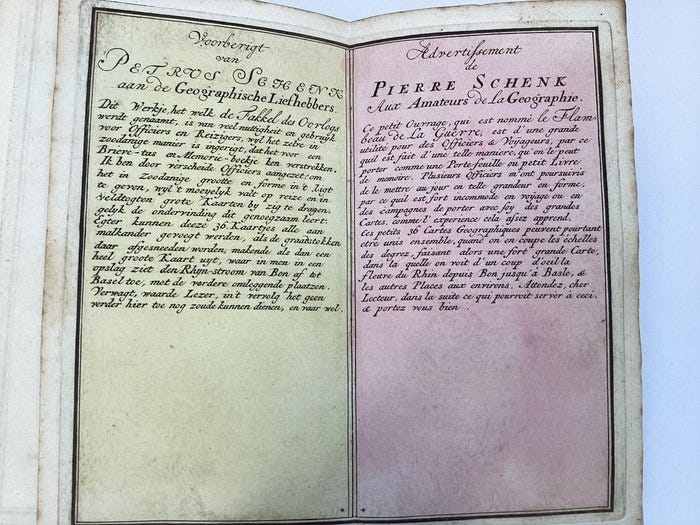 Voorberigt
van
PETRUS SCHENK
aan de Geographische Liefhebbers.
Dit Werkje, het welk de Fakkel des Oorlogs
werdt genaamt, is van veel nuttigheit en gebruijk
voor Officiers en Reizigers, wijl het zelve in
zoodanige manier is ingerigt, dat het voor een
Brieve-tas en Memorie-boekje kan verstrekken.
Ik ben door verscheide Officiers aangezet, om
het in zoodanige grootte en forme in 't ligt
te geven, wijl 't moeyelijk valt op reize en in
veldtogten grote Kaarten by zig te dragen,
gelijk de ondervinding dit genoegzaam leert.
Egter kunnen deeze 36 Kaartjes alle aan
malkander gevoegt werden, als de graadstokken
daar afgesneeden worden, makende als dan een
heel groote Kaart uyt, waar in men in een
opslag ziet den Rhyn-stroom van Bon af tot
Basel toe, met de verdere omleggende plaatzen.
Verwagt, waarde Lezer, in't vervolg het geen
verder hier toe nog zoude kunnen dienen, en vaar wel.
Advertissement
de
PIERRE SCHENK
Aux Amateurs de La Geographie.
Ce petit Ouvrage, qui est nommé le Flam-
beau de La Guerre, est d'une grande
utilité pour des Officiers & Voyageurs, par ce
quil est fait d'une telle maniere, qu'on le peut
porter comme une Porte-feuille ou petit Livre
de memoire. Plusieurs Officiers m'ont poursuivis
de le mettre au jour en telle grandeur en forme,
par ce quil est fort incommode en voyage ou en
des campagnes de porter avec soy des grandes
Cartes, comme l'experience cela assez apprend.
Ces petits 36 Cartes Geographiques peuvent pourtant
etre unis ensemble, quand on en coupe les échelles
des degrez, faisant alors une fort grande Carte,
dans la quelle on voit d'un coup d'oeil la
fleure du Rhin depuis Bon jusqu'à Basle, &
les autres Places aux environs. Attendez, cher
Lecteur, dans la suite ce qui pourroit server à ceci,
& portez vous bien.